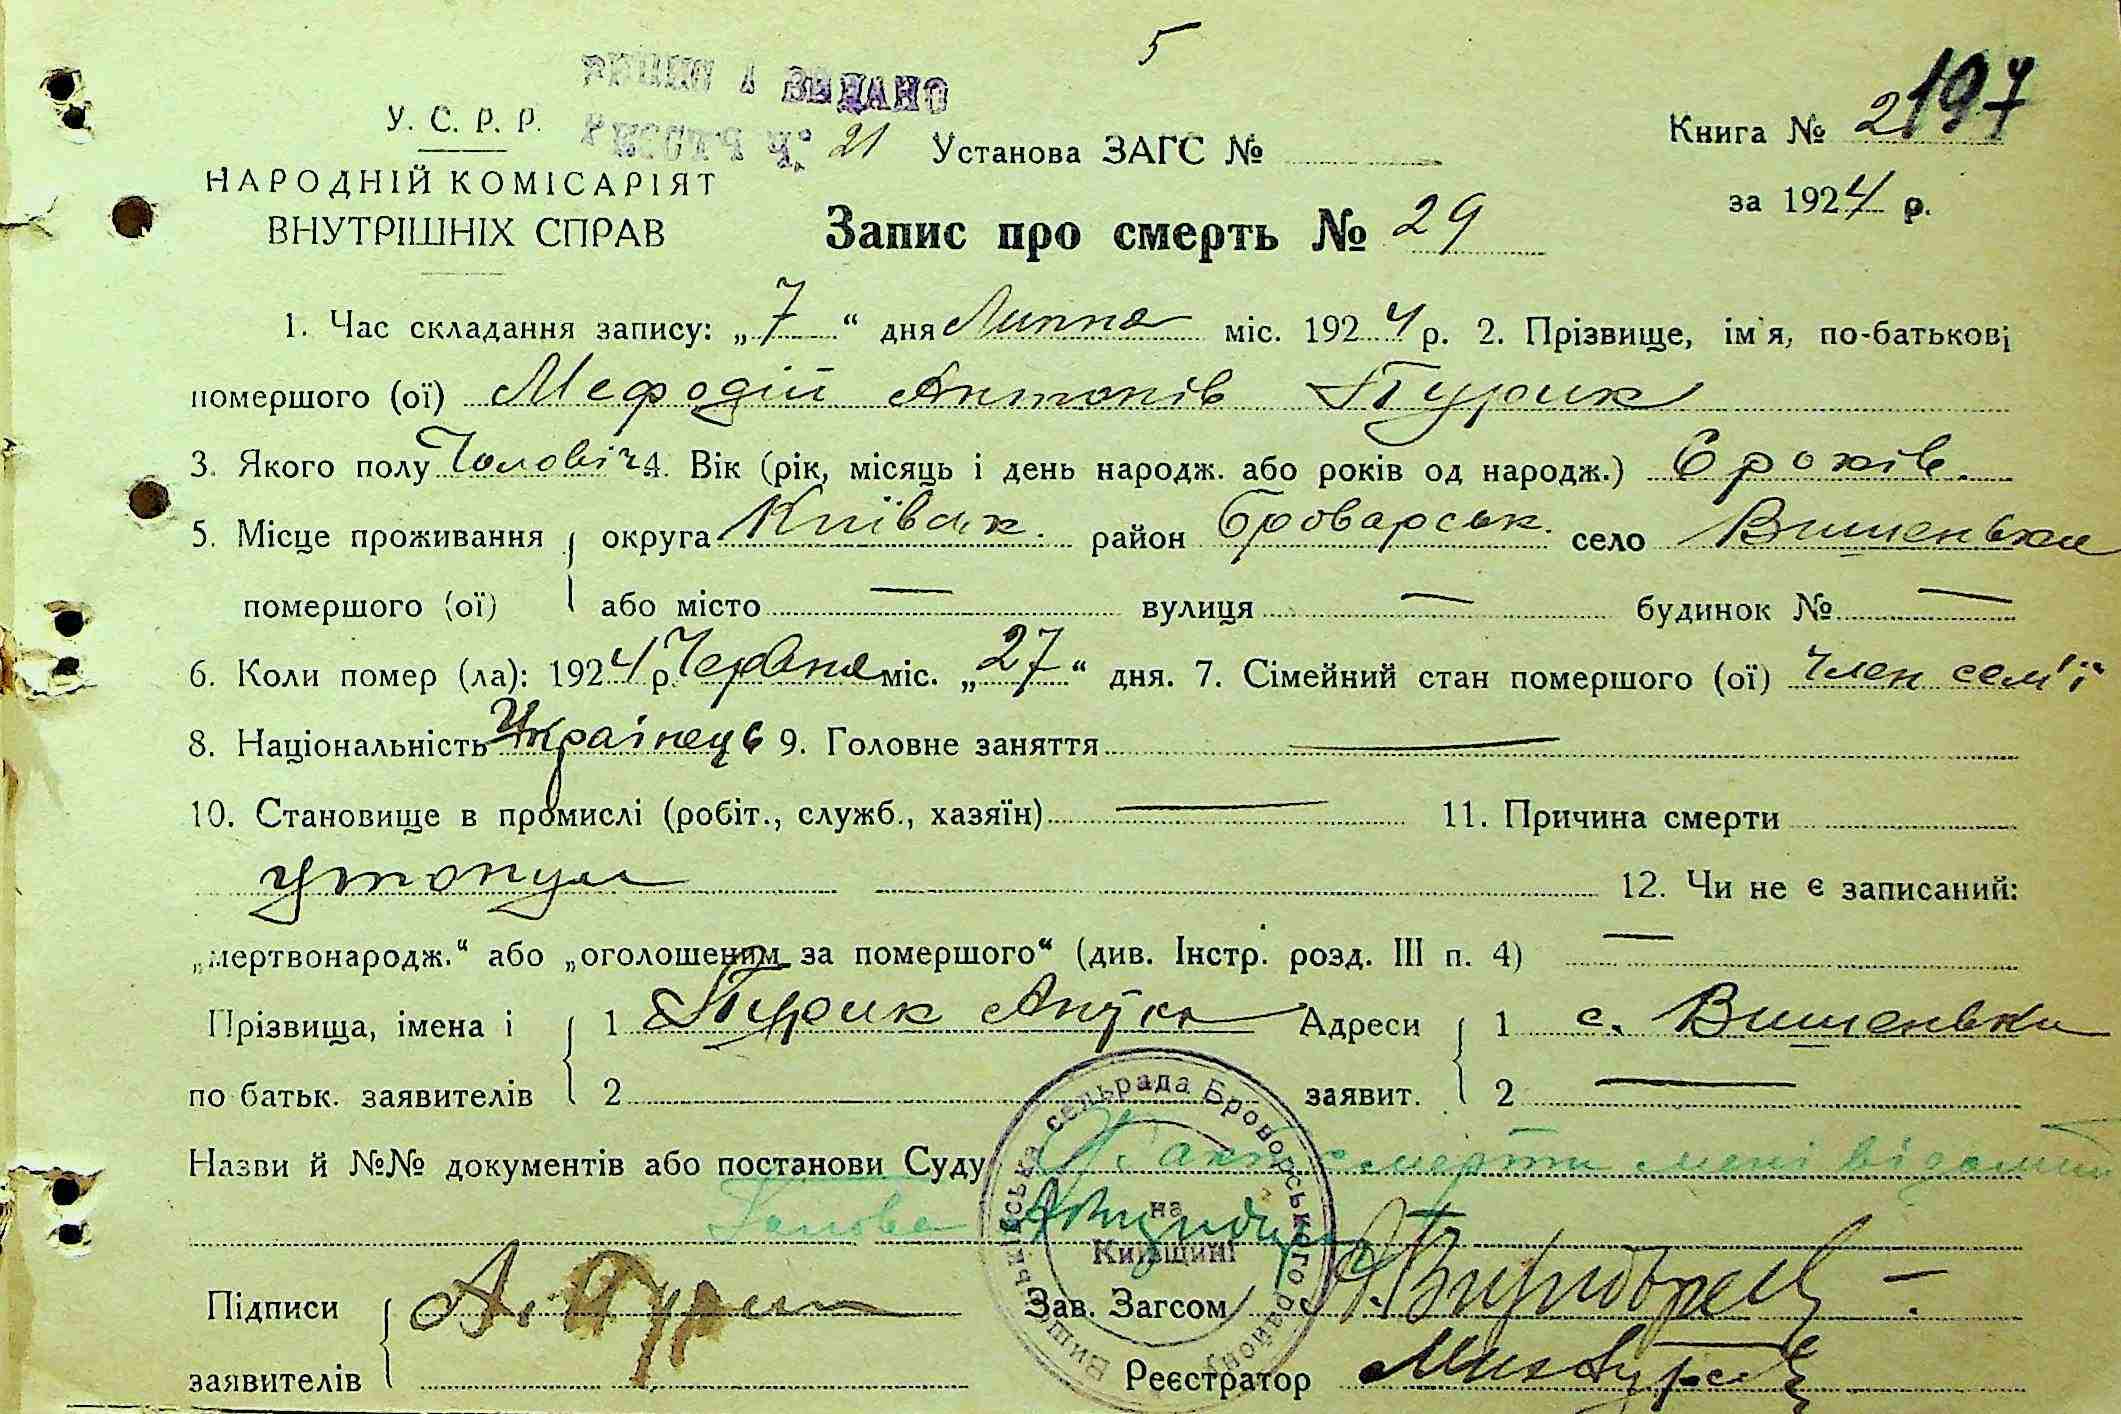 5
197
У. С. Р. Р.
НАРОДНІЙ КОМІСАРІЯТ
ВНУТРІШНІХ СПРАВ
21 Установа ЗАГС №
Книга № 2
за 1924 р.
Запис про смерть № 29
1. Час складання запису: „7“ дня Липня міс. 1924 р. 2. Прізвище, ім'я, по-батькові
помершого (ої) Мефодій Антонів Пурик
3. Якого полу Чоловіч 4. Вік (рік, місяць і день народж. або років од народж.) 6 років.
5. Місце проживання округа Київськ. район Броварськ. село Вишеньки
помершого (ої) або місто — вулиця — будинок № —
6. Коли помер (ла): 1924 р. Червня міс. „27“ дня. 7. Сімейний стан помершого (ої) член сем'ї
8. Національність Українець 9. Головне заняття —
10. Становище в промислі (робіт., служб., хазяїн) — 11. Причина смерти
утонул
12. Чи не є записаний:
„мертвонародж.“ або „оголошеним за помершого“ (див. Інстр. розд. III п. 4) —
Прізвища, імена і 1 Пурик Адреси 1 с. Вишеньки
по батьк. заявителів 2 заявит. 2 —
Назви й №№ документів або постанови Суду Факт смерти мені відомий
Голова
Вишеньківська сельрада Броворського району
на
Київщині
Підписи А. Пурик Зав. Загсом
заявителів Реєстратор